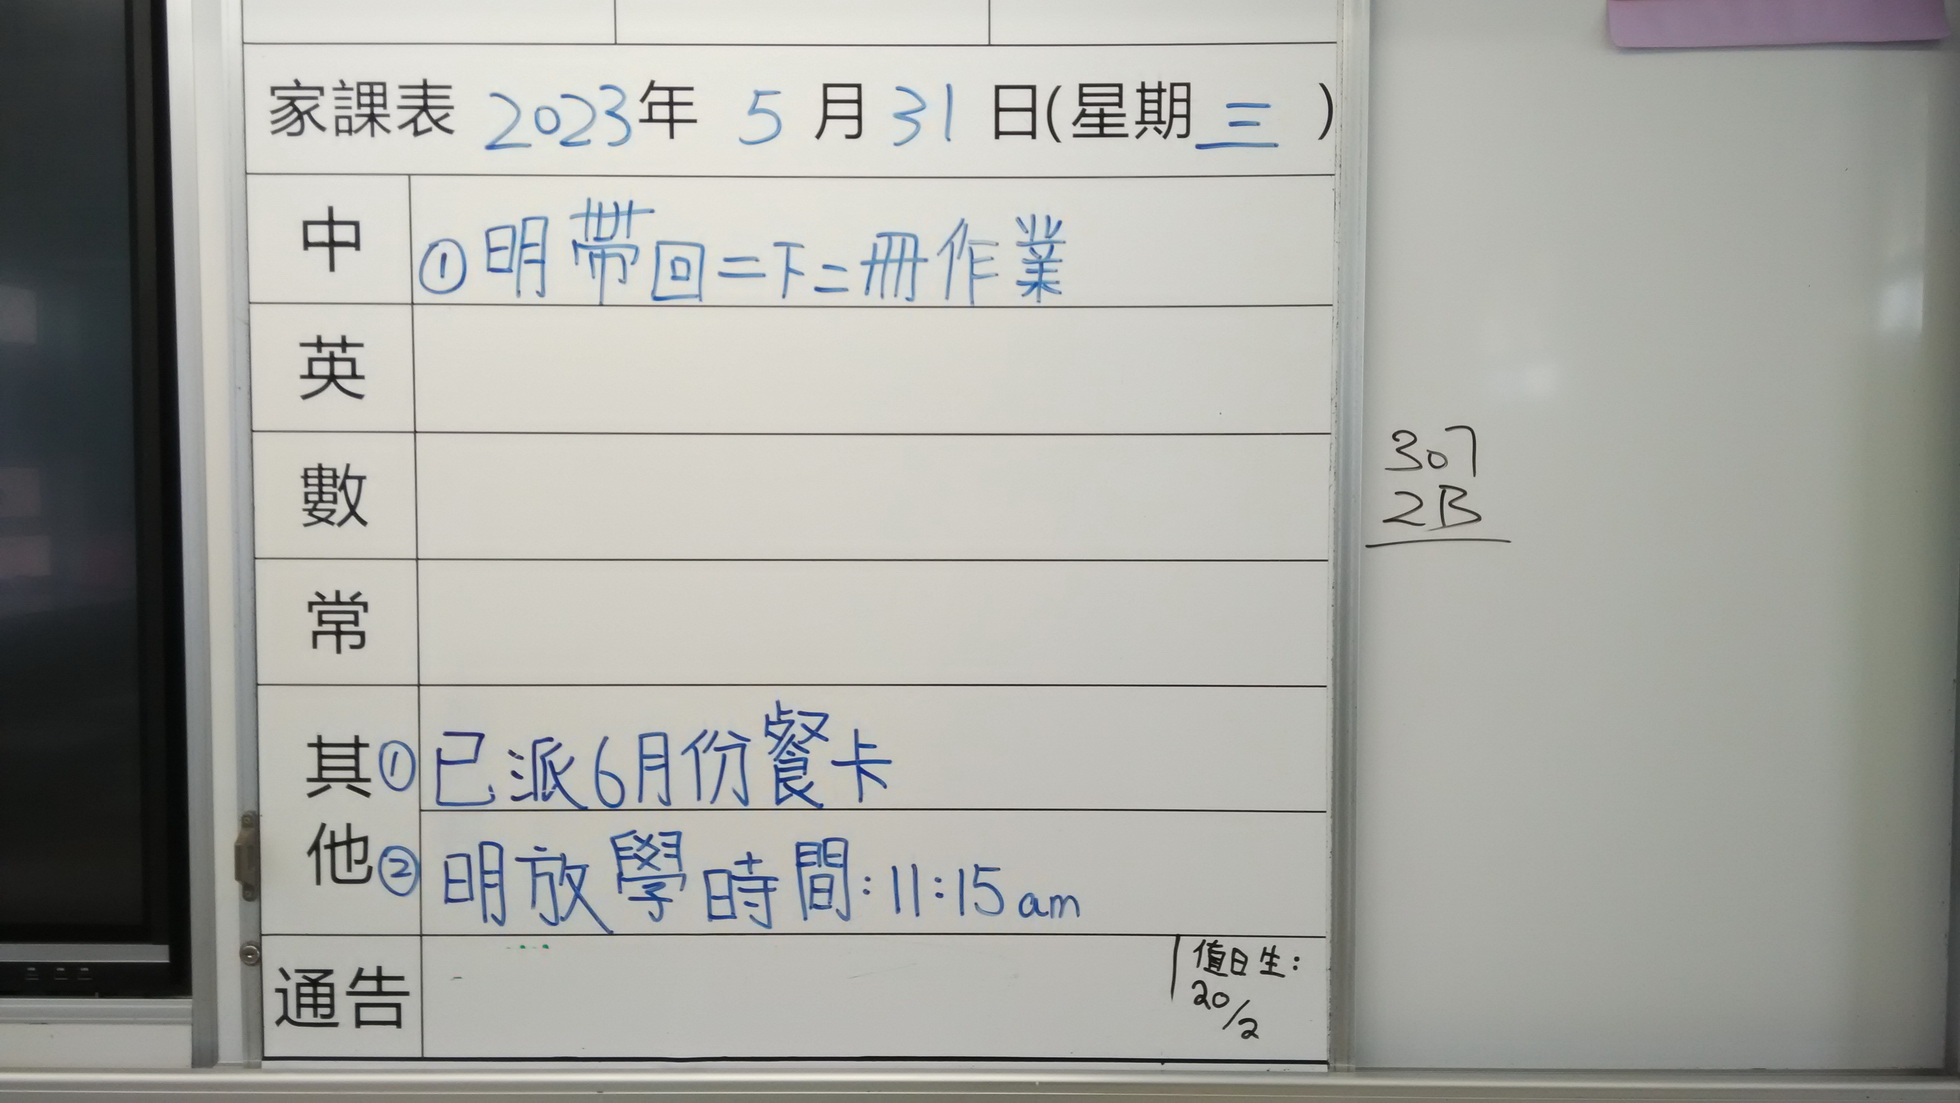 家課表 2023年 5月31日(星期三)
中 ①明帶回二下二冊作業
英
數
常
其他 ①已派6月份餐卡
②明放學時間:11:15am
通告
值日生:
20/2
307
2B